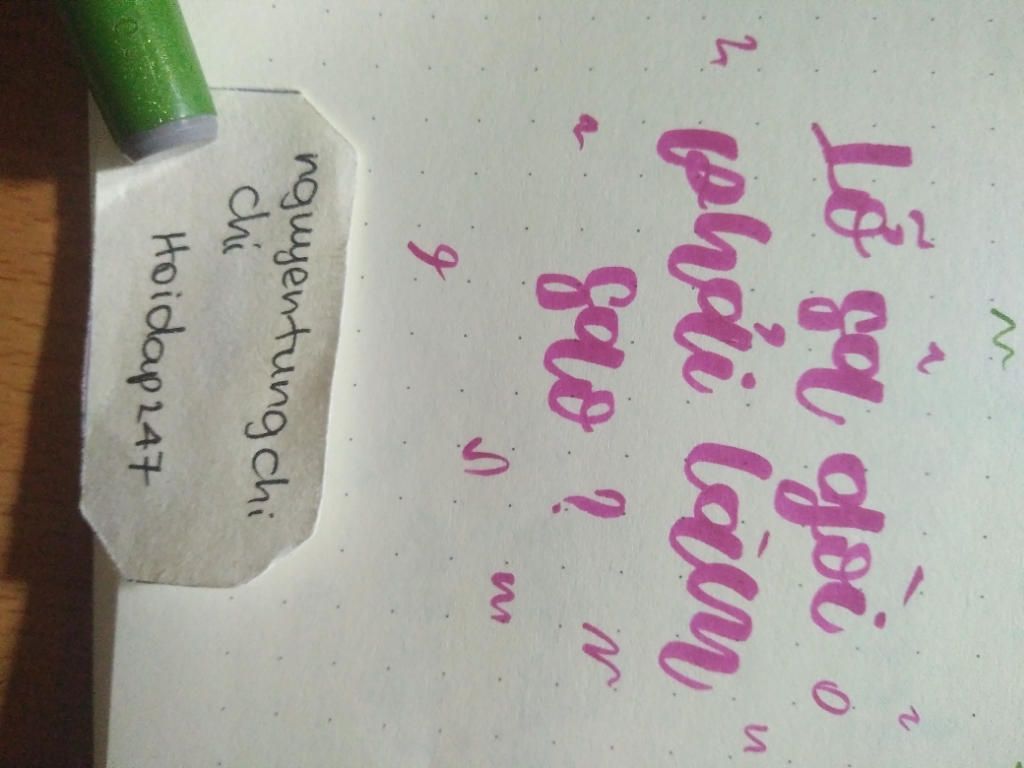 Lỡ sa gòi
phải làm
sao ?
nguyentungchi
chi
Hoidap247